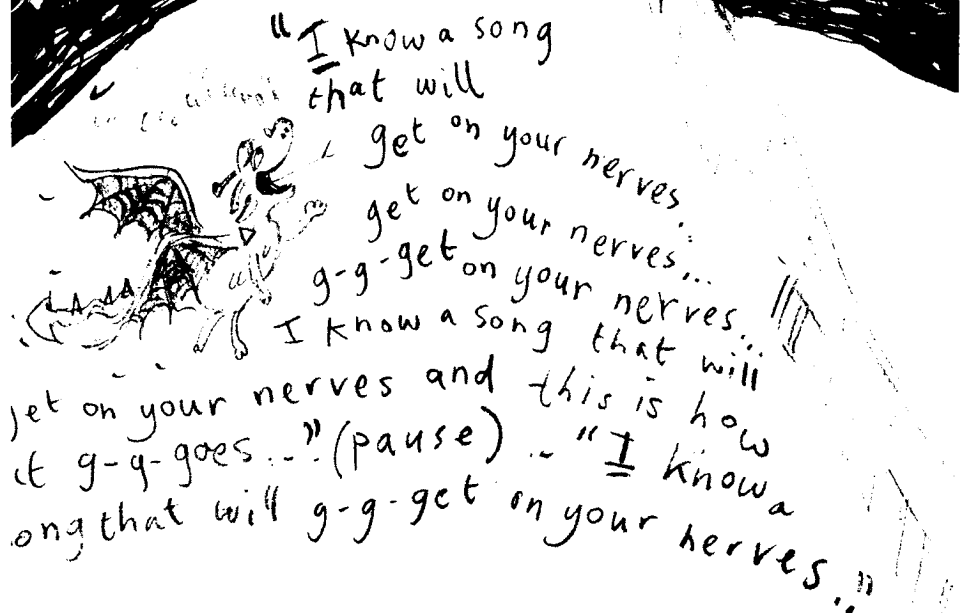 "I know a song
that will
get on your nerves.
get on your nerves...
g-g-get on your nerves...
I know a song that will
get on your nerves and this is how
it g-g-goes..." (pause) .. "I know a
ong that will g-g-get on your nerves.."